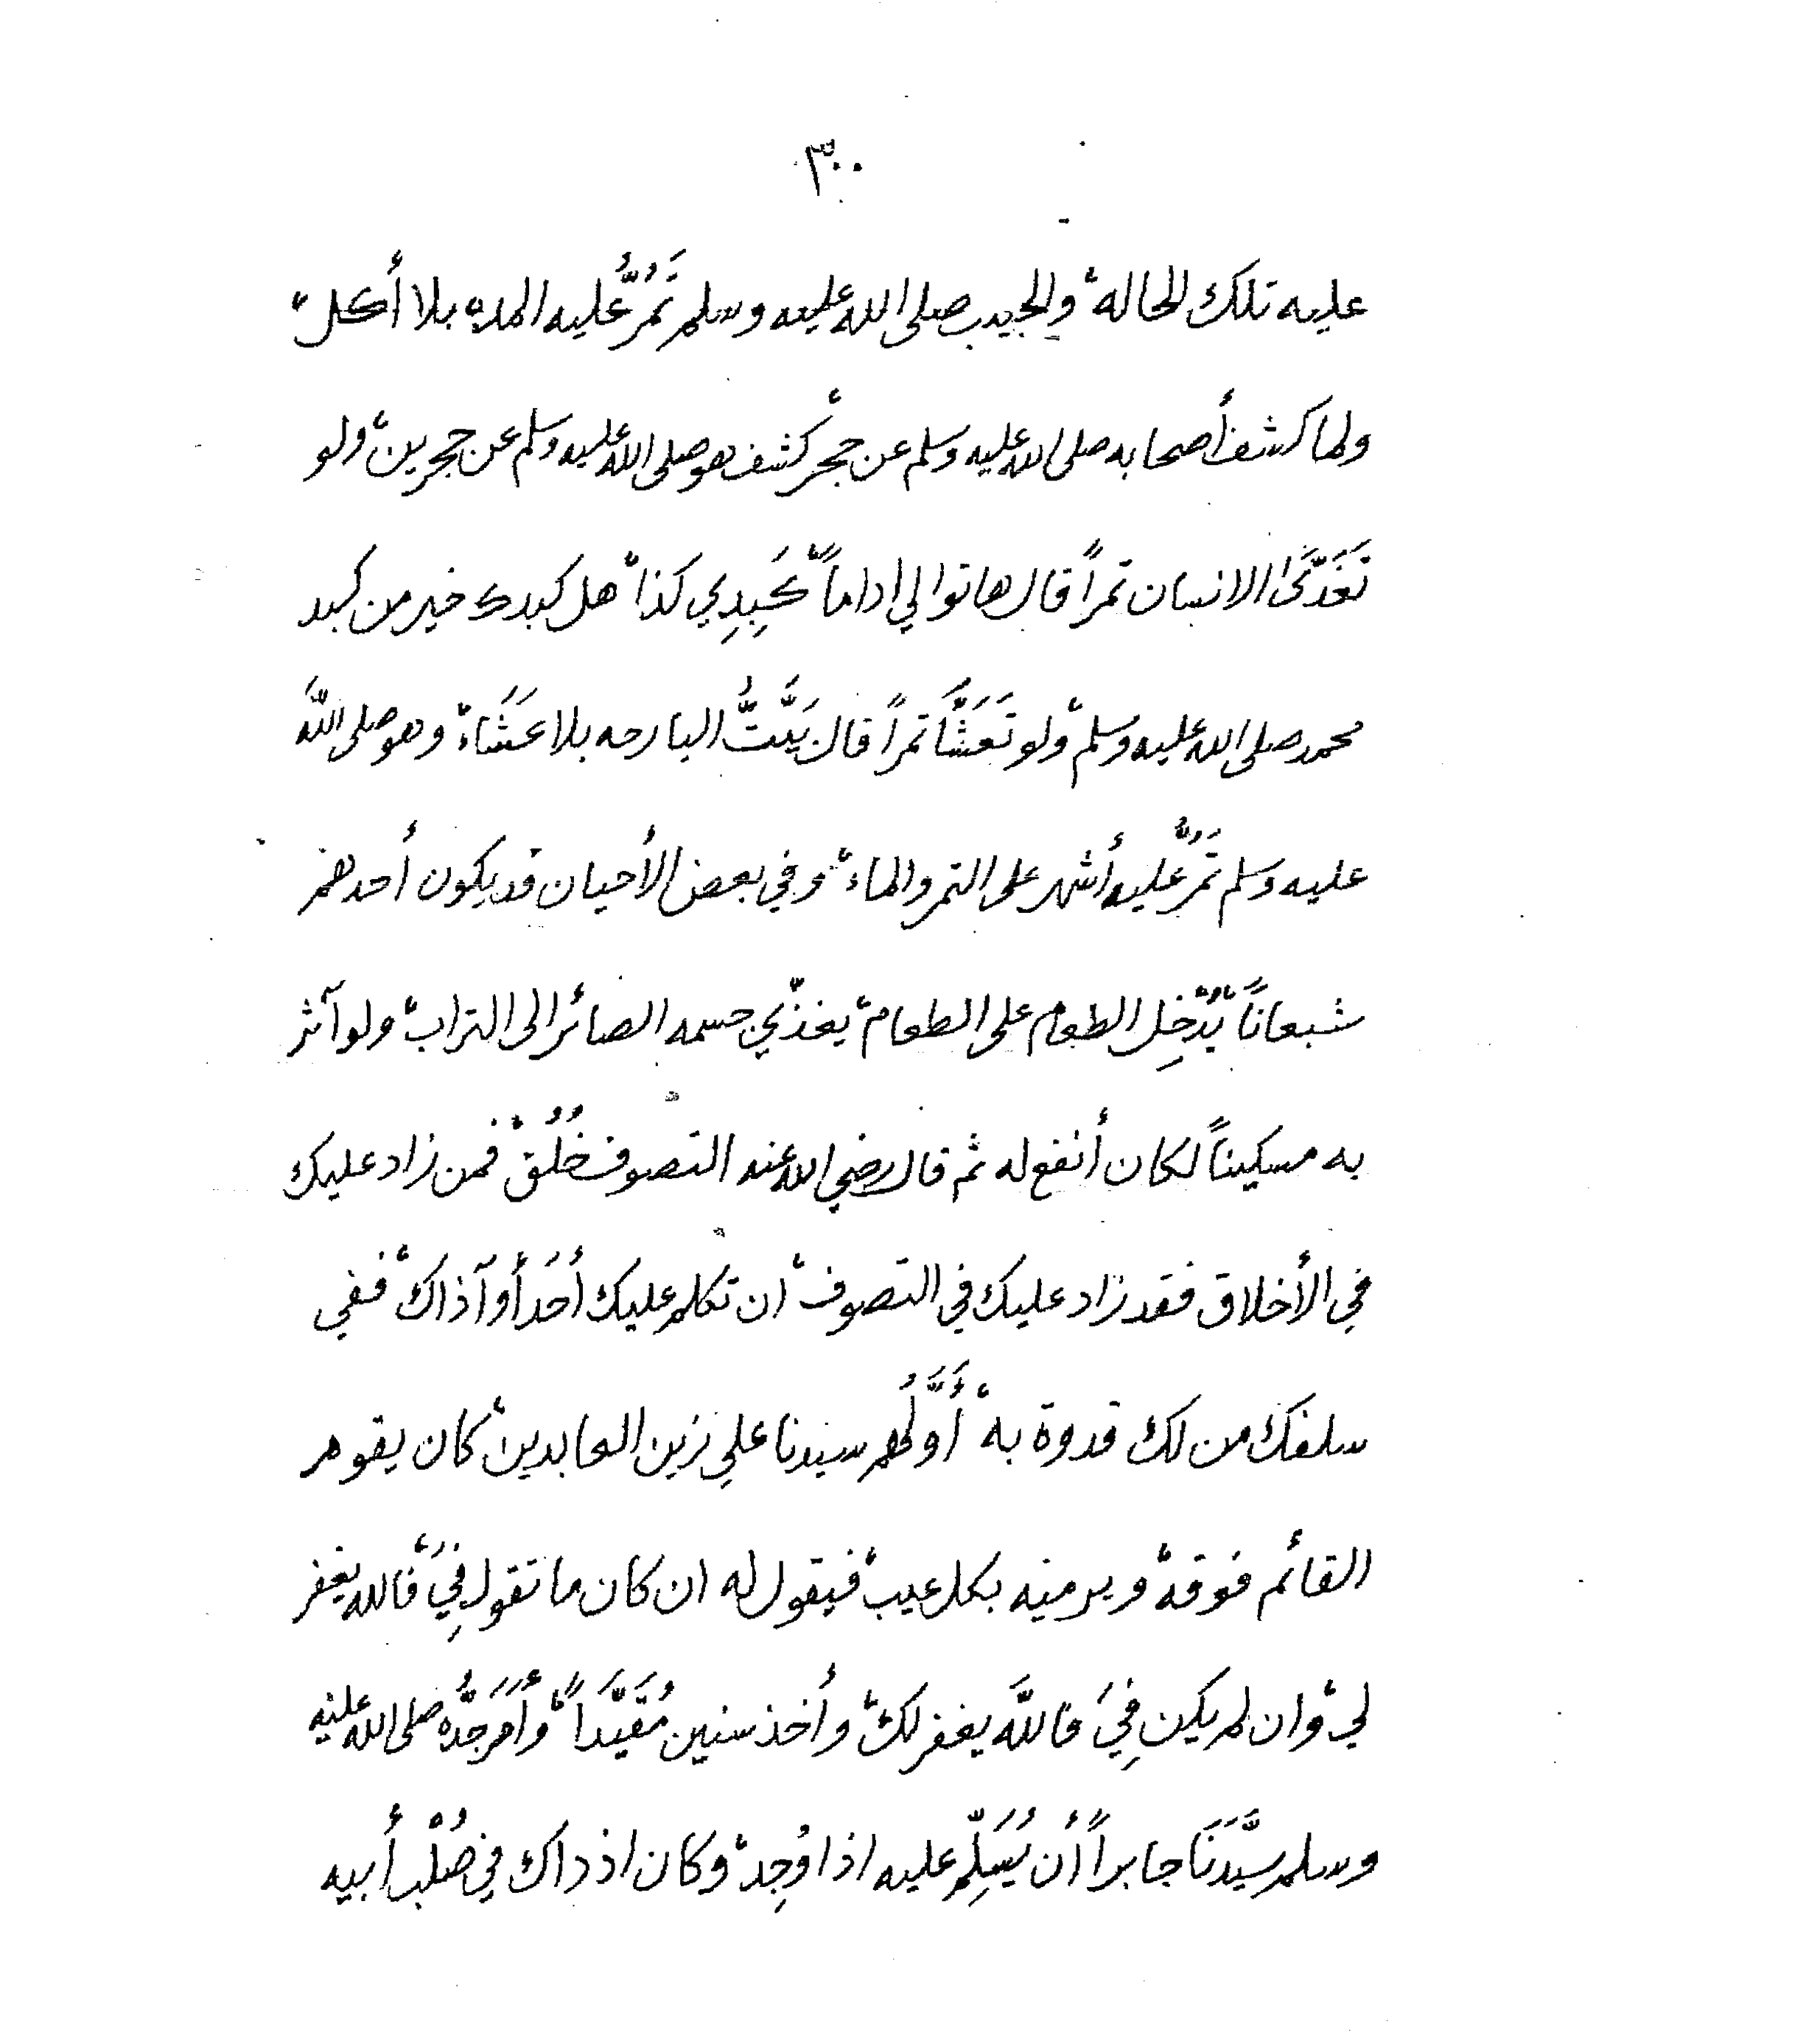 ٣٠٠
عليه تلك الحاله، والحبيب صلى الله عليه وسلم تَمُرُّ عليه المده بلا أكل،
ولما كشف أصحابه صلى الله عليه وسلم عن حجْر كشف هو صلى الله عليه وسلم عن حجرين، ولو
تَغَدَّىٰ الانسان تمراً قال هاتوا لي اداماً، كَبِدِي كذا، هل كبدك خير من كبد
محمد صلى الله عليه وسلم، ولو تَعَشَّا تمراً قال بَيَّتُّ البارحه بلا عَشَاء، وهو صلى اللهُ
عليه وسلم تَمُرُّ عليه أشهر على التمر والماء، وفي بعض الأحيان قد يكون أحدهم
شبعاناً يُدْخِل الطعام على الطعام، يغذّي جسمه الصائر الى التراب، ولو آثر
به مسكيناً لكان أنفع له ثم قال رضي الله عنه التصوف خُلُقْ فمن زاد عليك
في الأخلاق فقد زاد عليك في التصوف، ان تكلم عليك أحَد أو آذاك، ففي
سلفك من لك قدوة به، أَوَّلُهم سيدنا علي زين العابدين، كان يقوم
القائم فوقه، ويرميه بكل عيب، فيقول له ان كان ما تقول فِيَ، فالله يغفر
لي، وان لم يكن فِيَ فاللَّه يغفر لك، وأخذ سنين مُقَيَّداً، وأَمَر جَدُّه صلى الله عليه
وسلم سيَّدَنَا جابراً أن يُسَلِّم عليه اذا وُجِد، وكان اذ ذاك في صُلْب أبيه